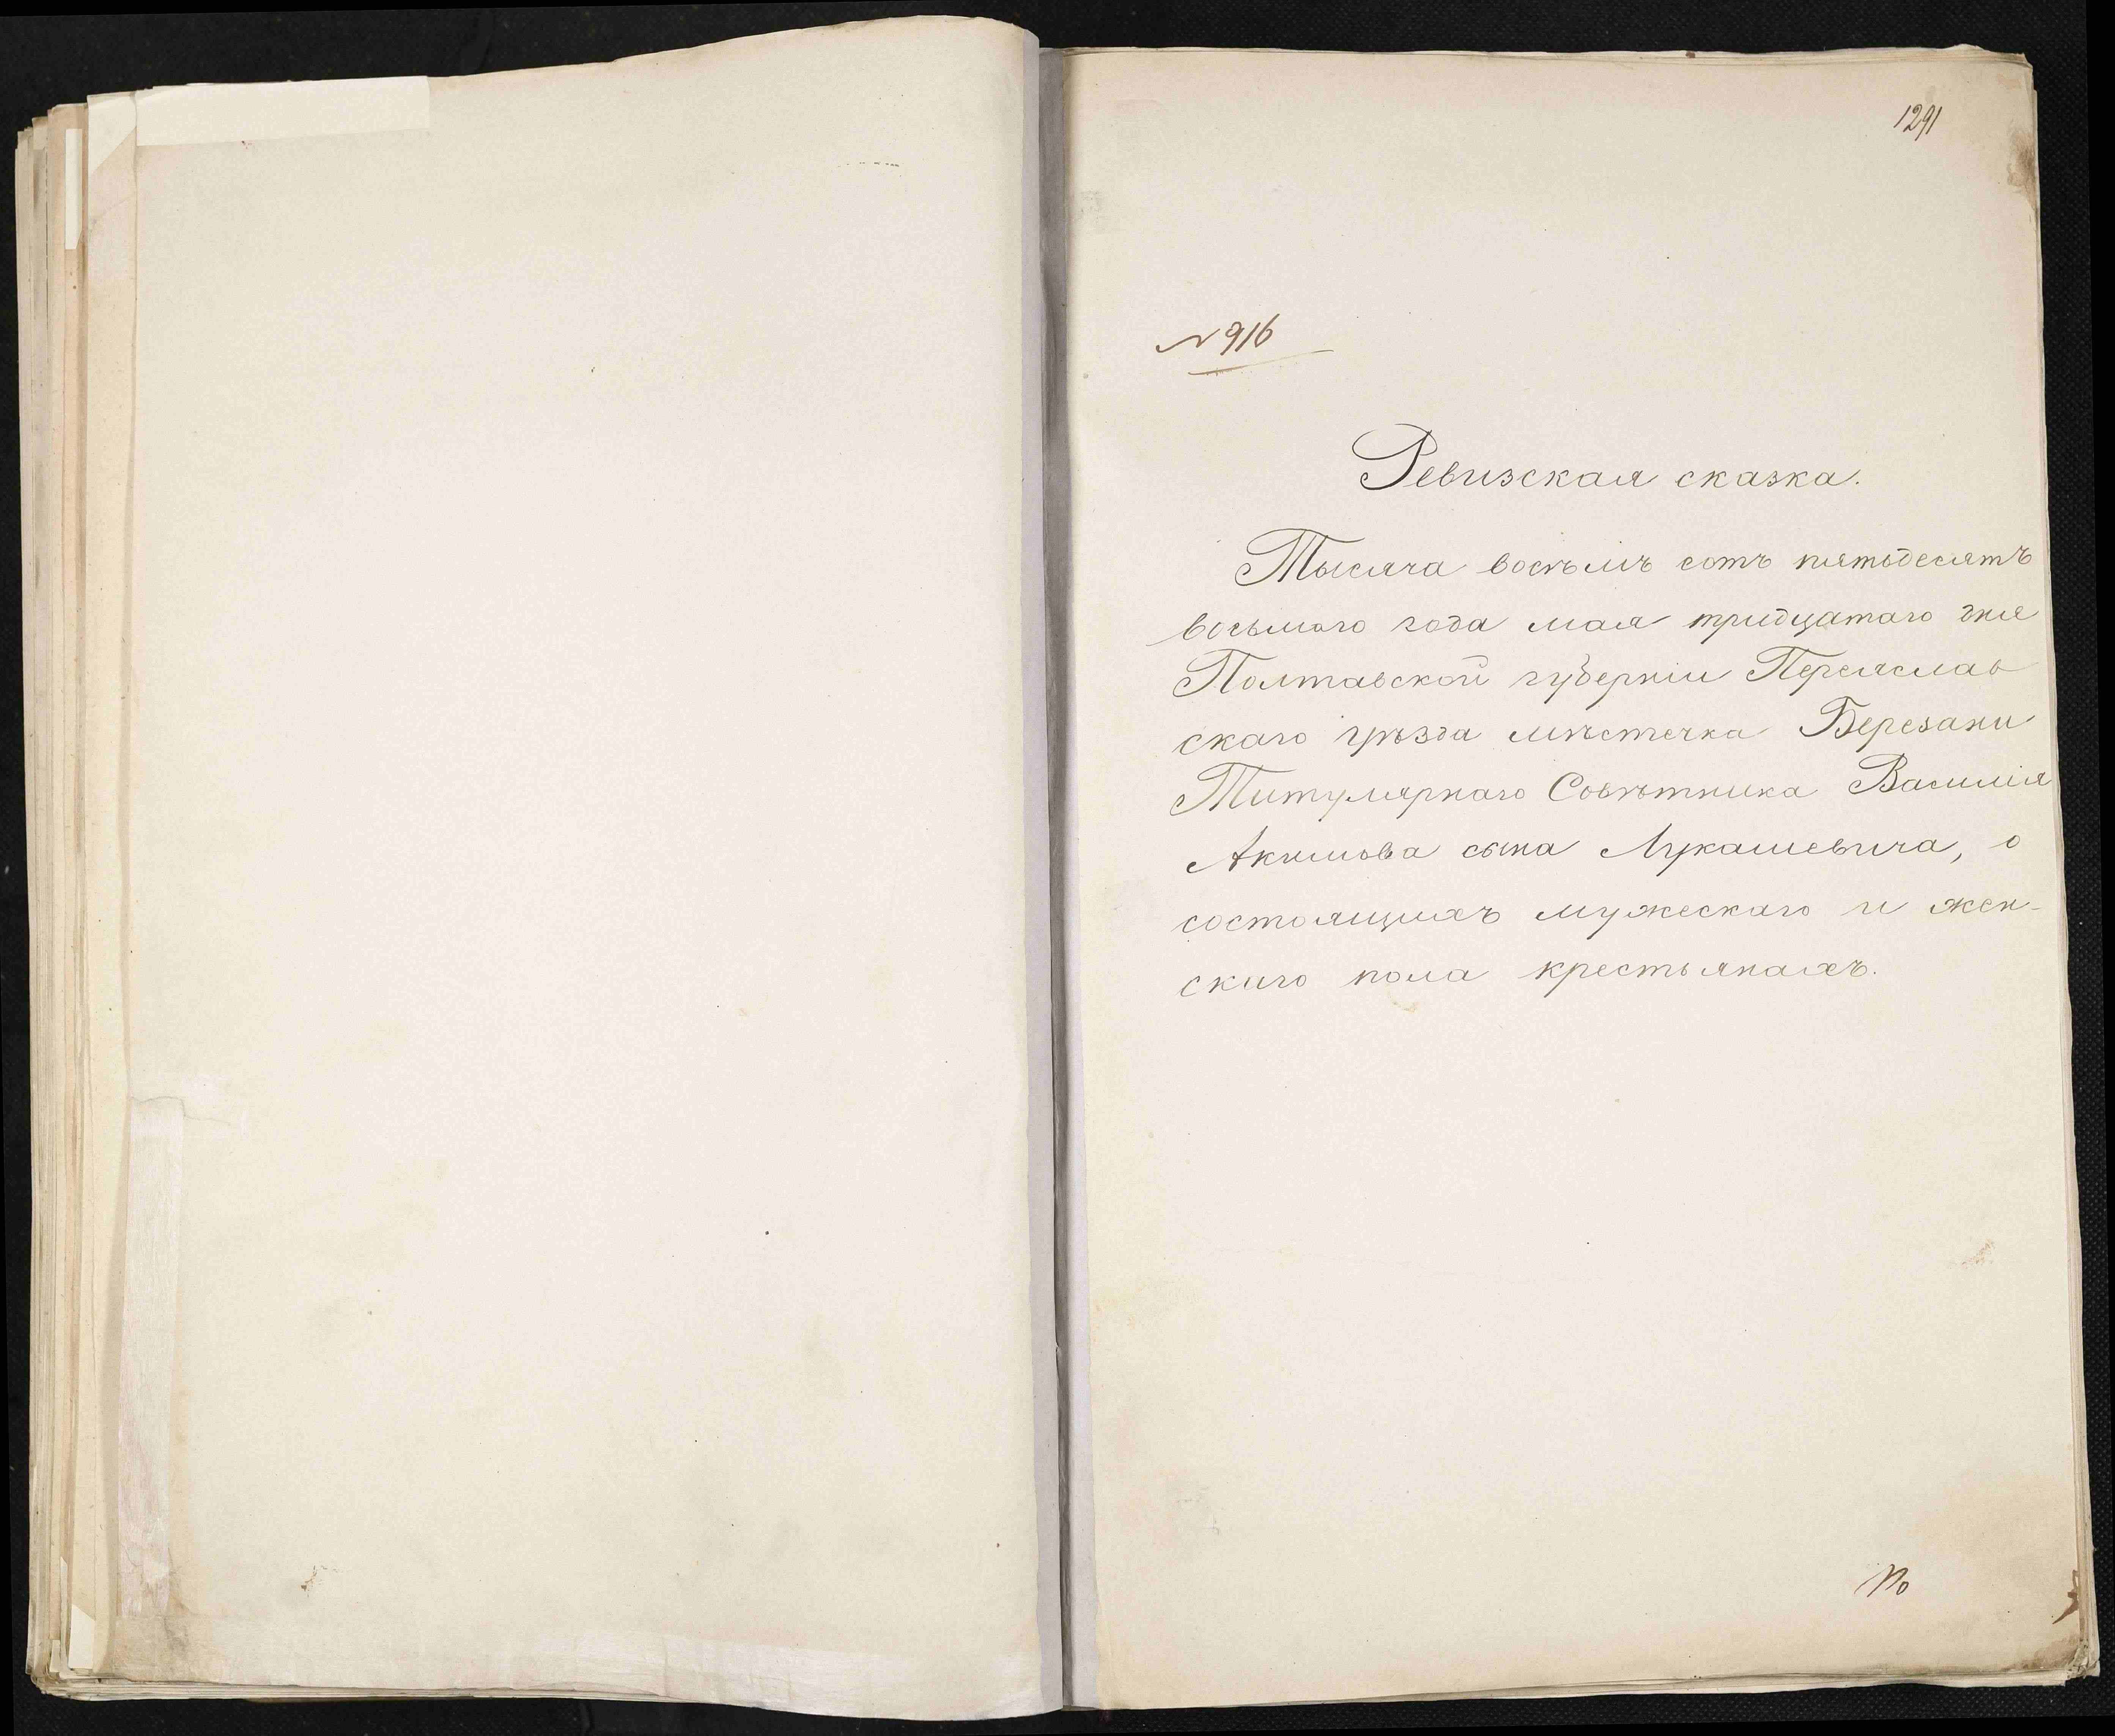 1291
№ 916
Ревизская сказка.
Тысяча восемъ сотъ пятьдесятъ
восьмаго года мая тридцатаго дня
Полтавской губерніи Переяслав
скаго уѣзда мѣстечка Березани
Титулярнаго Совѣтника Василія
Акимова сына Лукашевича, о
состоящихъ мужескаго и жен-
скаго пола крестьянахъ.
По